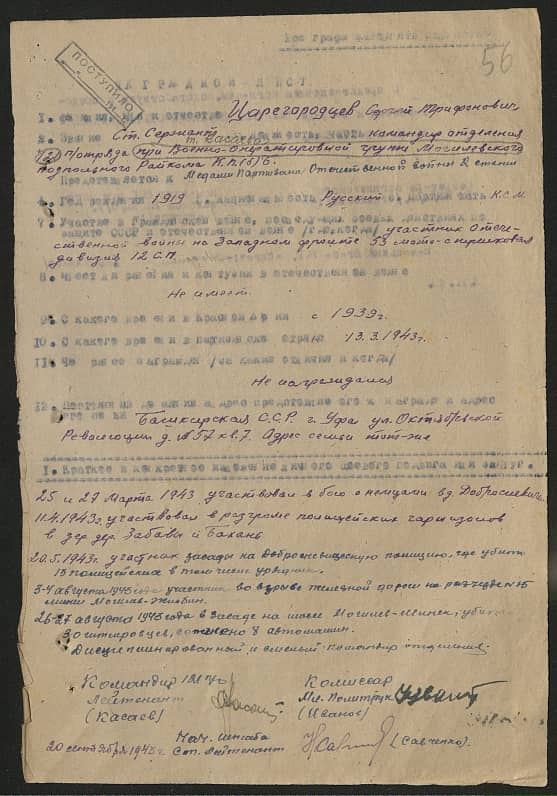 56
ПОСТУПИЛО
НАГРАДНОЙ ЛИСТ
1. Фамилия, имя и отчество Царегородцев Сергей Трифонович
2. Звание Ст. Сержант должность, часть командир отделения
т. Касаева
121 П/отряда при Военно-оперативной группе Могилевского
подпольного Райкома К.П.(б)Б.
Представляется к Медаль Партизана Отечественной войны 2 степени
4. Год рождения 1919 национальность Русский партийность К.С.М.
7. Участие в гражданской войне, последующих боевых действиях по
защите СССР и отечественной войне /где, когда/ участник Отече-
ственной войны на Западном фронте 53 мото-стрелковая
дивизия 12 С.П.
8. Имеет ли ранения и контузии в отечественной войне
Не имеет.
9. С какого времени в Красной Армии с 1939г.
10. С какого времени в партизанском отряде 13.3.1943г.
11. Чем ранее награжден /за какие отличия и когда/
Не награждался
12. Постоянный домашний адрес представляемого к награде и адрес
его семьи Башкирская С.С.Р. г. Уфа ул. Октябрьской
Революции д. №57 кв.7. Адрес семьи тот-же
I. Краткое и конкретное изложение личного боевого подвига или заслуг.
25 и 27 Марта 1943 участвовал в бою с немцами в д. Добросневичи
11.4.1943г. участвовал в разгроме полицейских гарнизонов
в дер. дер. Забавы и Бахань
20.5.1943г. участник засады на Добросневицкую полицию, где убито
15 полицейских в том числе урядник.
3-4 августа 1943 года участник во взрыве железной дороги на разъезде
линии Могилев-Жлобин.
26-27 августа 1943 года в засаде на шоссе Могилев-Минск, убито
30 гитлеровцев, сожжено 8 автомашин.
Дисциплинированный и смелый командир отделения.
Командир 121 П/о Комиссар
Лейтенант Мл. Политрук
(Касаев) (Иванов)
Нач. штаба
20 сентября 1943г. Ст. Лейтенант (Савченко).